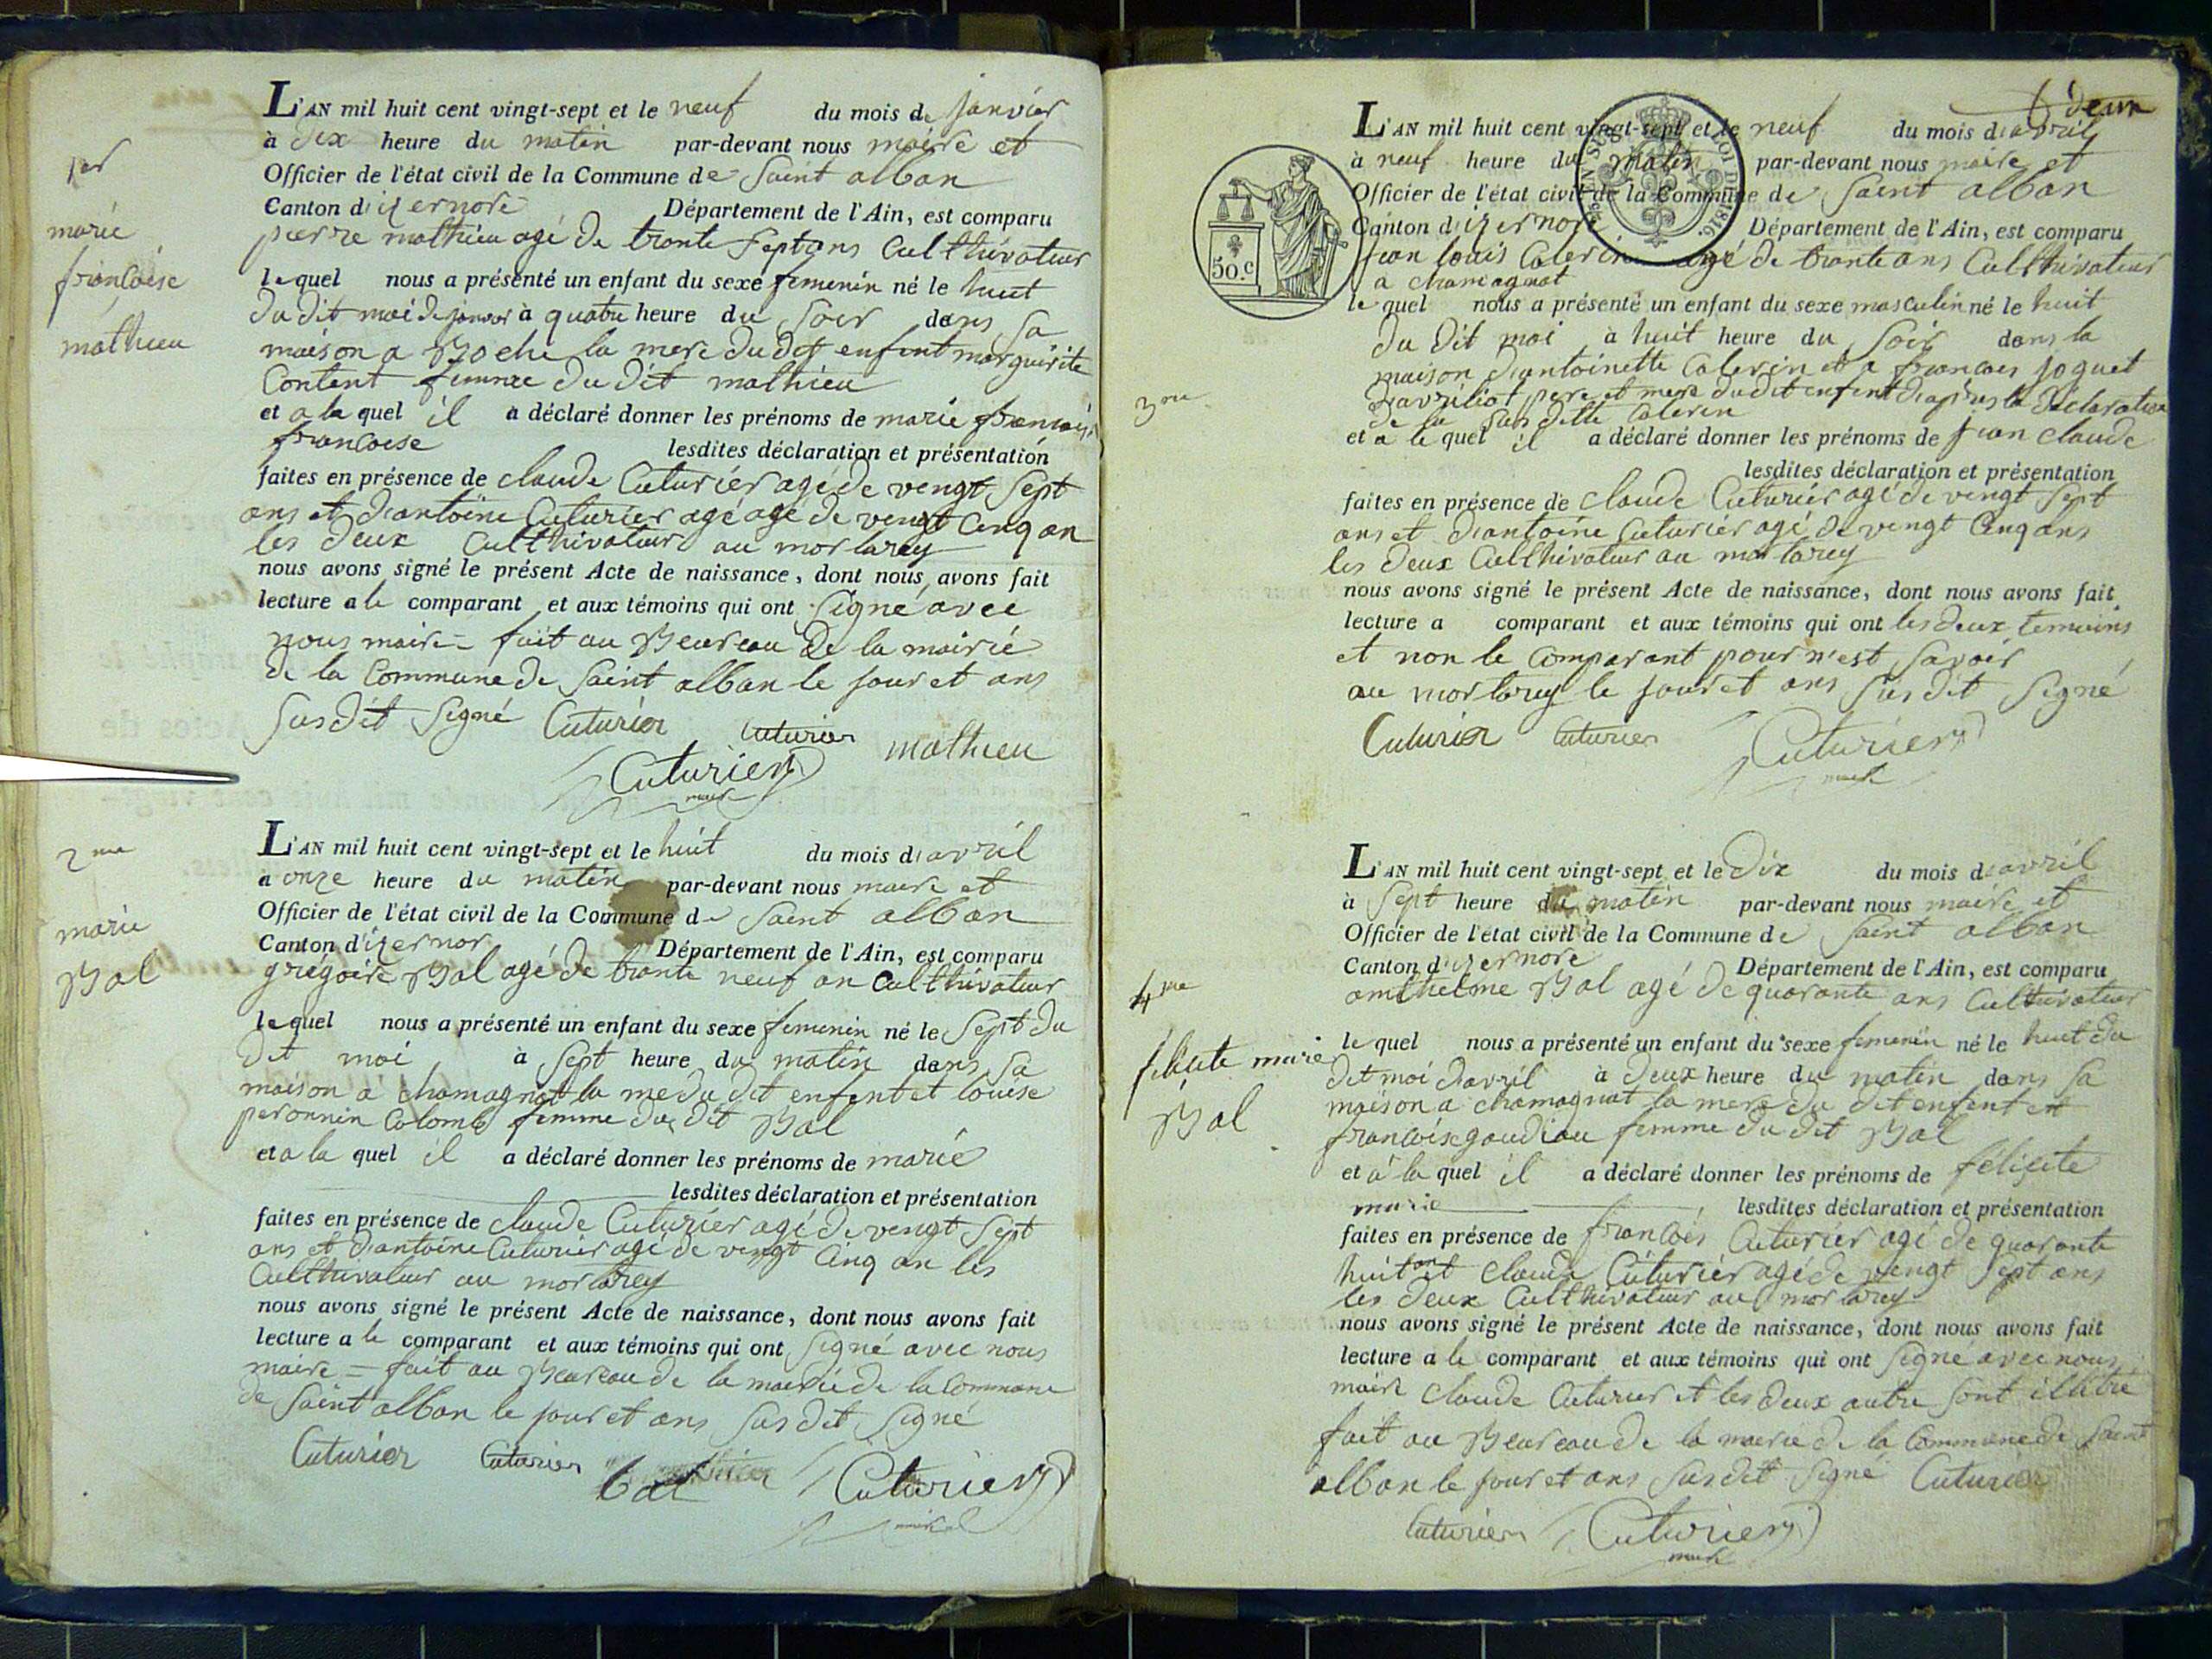 1er
marie
francoise
mathieu
L'AN mil huit cent vingt-sept et le neuf du mois de janvier
à dix heure du matin par-devant nous maire et
Officier de l'état civil de la Commune de Saint alban
Canton d'izernore Département de l'Ain, est comparu
pierre mathieu agé de trante sept ans Culthivateur
lequel nous a présenté un enfant du sexe femenin né le huit
du dit moi de janvier à quatre heure du soir dans sa
maison a Boche la mere du dit enfent marguirite
Content femme du dit mathieu
et a la quel il a déclaré donner les prénoms de marie francoise
francoise lesdites déclaration et présentation
faites en présence de claude Cuturier agé de vengt sept
ans et d'antoine Cuturier agé agé de vengt Cinq an
les deux Culthivateur au mortarey
nous avons signé le présent Acte de naissance, dont nous avons fait
lecture a le comparant et aux témoins qui ont signé avec
nous maire = fait au Beureau de la mairie
de la Commune de Saint alban le jour et ans
susdit signé Cuturier Cuturier mathieu
Cuturier
maire
2me
marie
Bal
L'AN mil huit cent vingt-sept et le huit du mois d'avril
a onze heure du matin par-devant nous maire et
Officier de l'état civil de la Commune de Saint alban
Canton d'izernor Département de l'Ain, est comparu
grégoire Bal agé de trante neuf an Culthivateur
lequel nous a présenté un enfant du sexe femenin né le sept du
dit moi à sept heure du matin dans sa
maison a chamagnat la me du dit enfent et louise
peronnin Colomb femme du dit Bal
et a la quel il a déclaré donner les prénoms de marie
lesdites déclaration et présentation
faites en présence de claude Cuturier agé de vengt sept
ans et d'antoine Cuturier agé de vengt Cinq an les
Culthivateur au mortarey
nous avons signé le présent Acte de naissance, dont nous avons fait
lecture a le comparant et aux témoins qui ont signé avec nous
maire = fait au Beureau de la mairie de la Commune
de Saint alban le jour et ans susdit signé
Cuturier Cuturier bal Cuturier
deux
L'AN mil huit cent vingt-sept et le neuf du mois d'avril
à neuf heure du matin par-devant nous maire et
Officier de l'état civil de la Commune de Saint alban
Canton d'izernore Département de l'Ain, est comparu
50.c
LOI DE 1816.
jean louis Calerin agé de trante ans Culthivateur
a chamagnat
lequel nous a présenté un enfant du sexe masculin né le huit
du dit moi à huit heure du soir dans la
maison d'antoinette Calerin et a francois joquet
d'avriliat pere et mere du dit enfent d'apres la declaration
de la susditte Calerin
3me
et a le quel il a déclaré donner les prénoms de jean claude
lesdites déclaration et présentation
faites en présence de claude Cuturier agé de vengt sept
ans et d'antoine Cuturier agé de vengt Cinq ans
les deux Culthivateur au mortarey
nous avons signé le présent Acte de naissance, dont nous avons fait
lecture a comparant et aux témoins qui ont les deux temoins
et non le Comparant pour n'est savoir
au mortarey le jour et ans susdit signé
Cuturier Cuturier Cuturier
maire
4me
félicite marie
Bal
L'AN mil huit cent vingt-sept et le dix du mois d'avril
à sept heure du matin par-devant nous maire et
Officier de l'état civil de la Commune de Saint alban
Canton d'izernore Département de l'Ain, est comparu
amthelme Bal agé de quarante ans Culthivateur
lequel nous a présenté un enfant du sexe femenin né le huit du
dit moi d'avril à deux heure du matin dans sa
maison a chamagnat la mere du dit enfent est
francoise goudiau femme du dit Bal
et a la quel il a déclaré donner les prénoms de félicite
marie lesdites déclaration et présentation
faites en présence de francois Cuturier agé de quarante
huit an et claude Cuturier agé de vengt sept ans
les deux Culthivateur au mortarey
nous avons signé le présent Acte de naissance, dont nous avons fait
lecture a le comparant et aux témoins qui ont signé avec nous
maire claude Cuturier et les deux autre sont illitré
fait au Beureau de la mairie de la Commune de Saint
alban le jour et ans susdit signé Cuturier
Cuturier Cuturier
maire